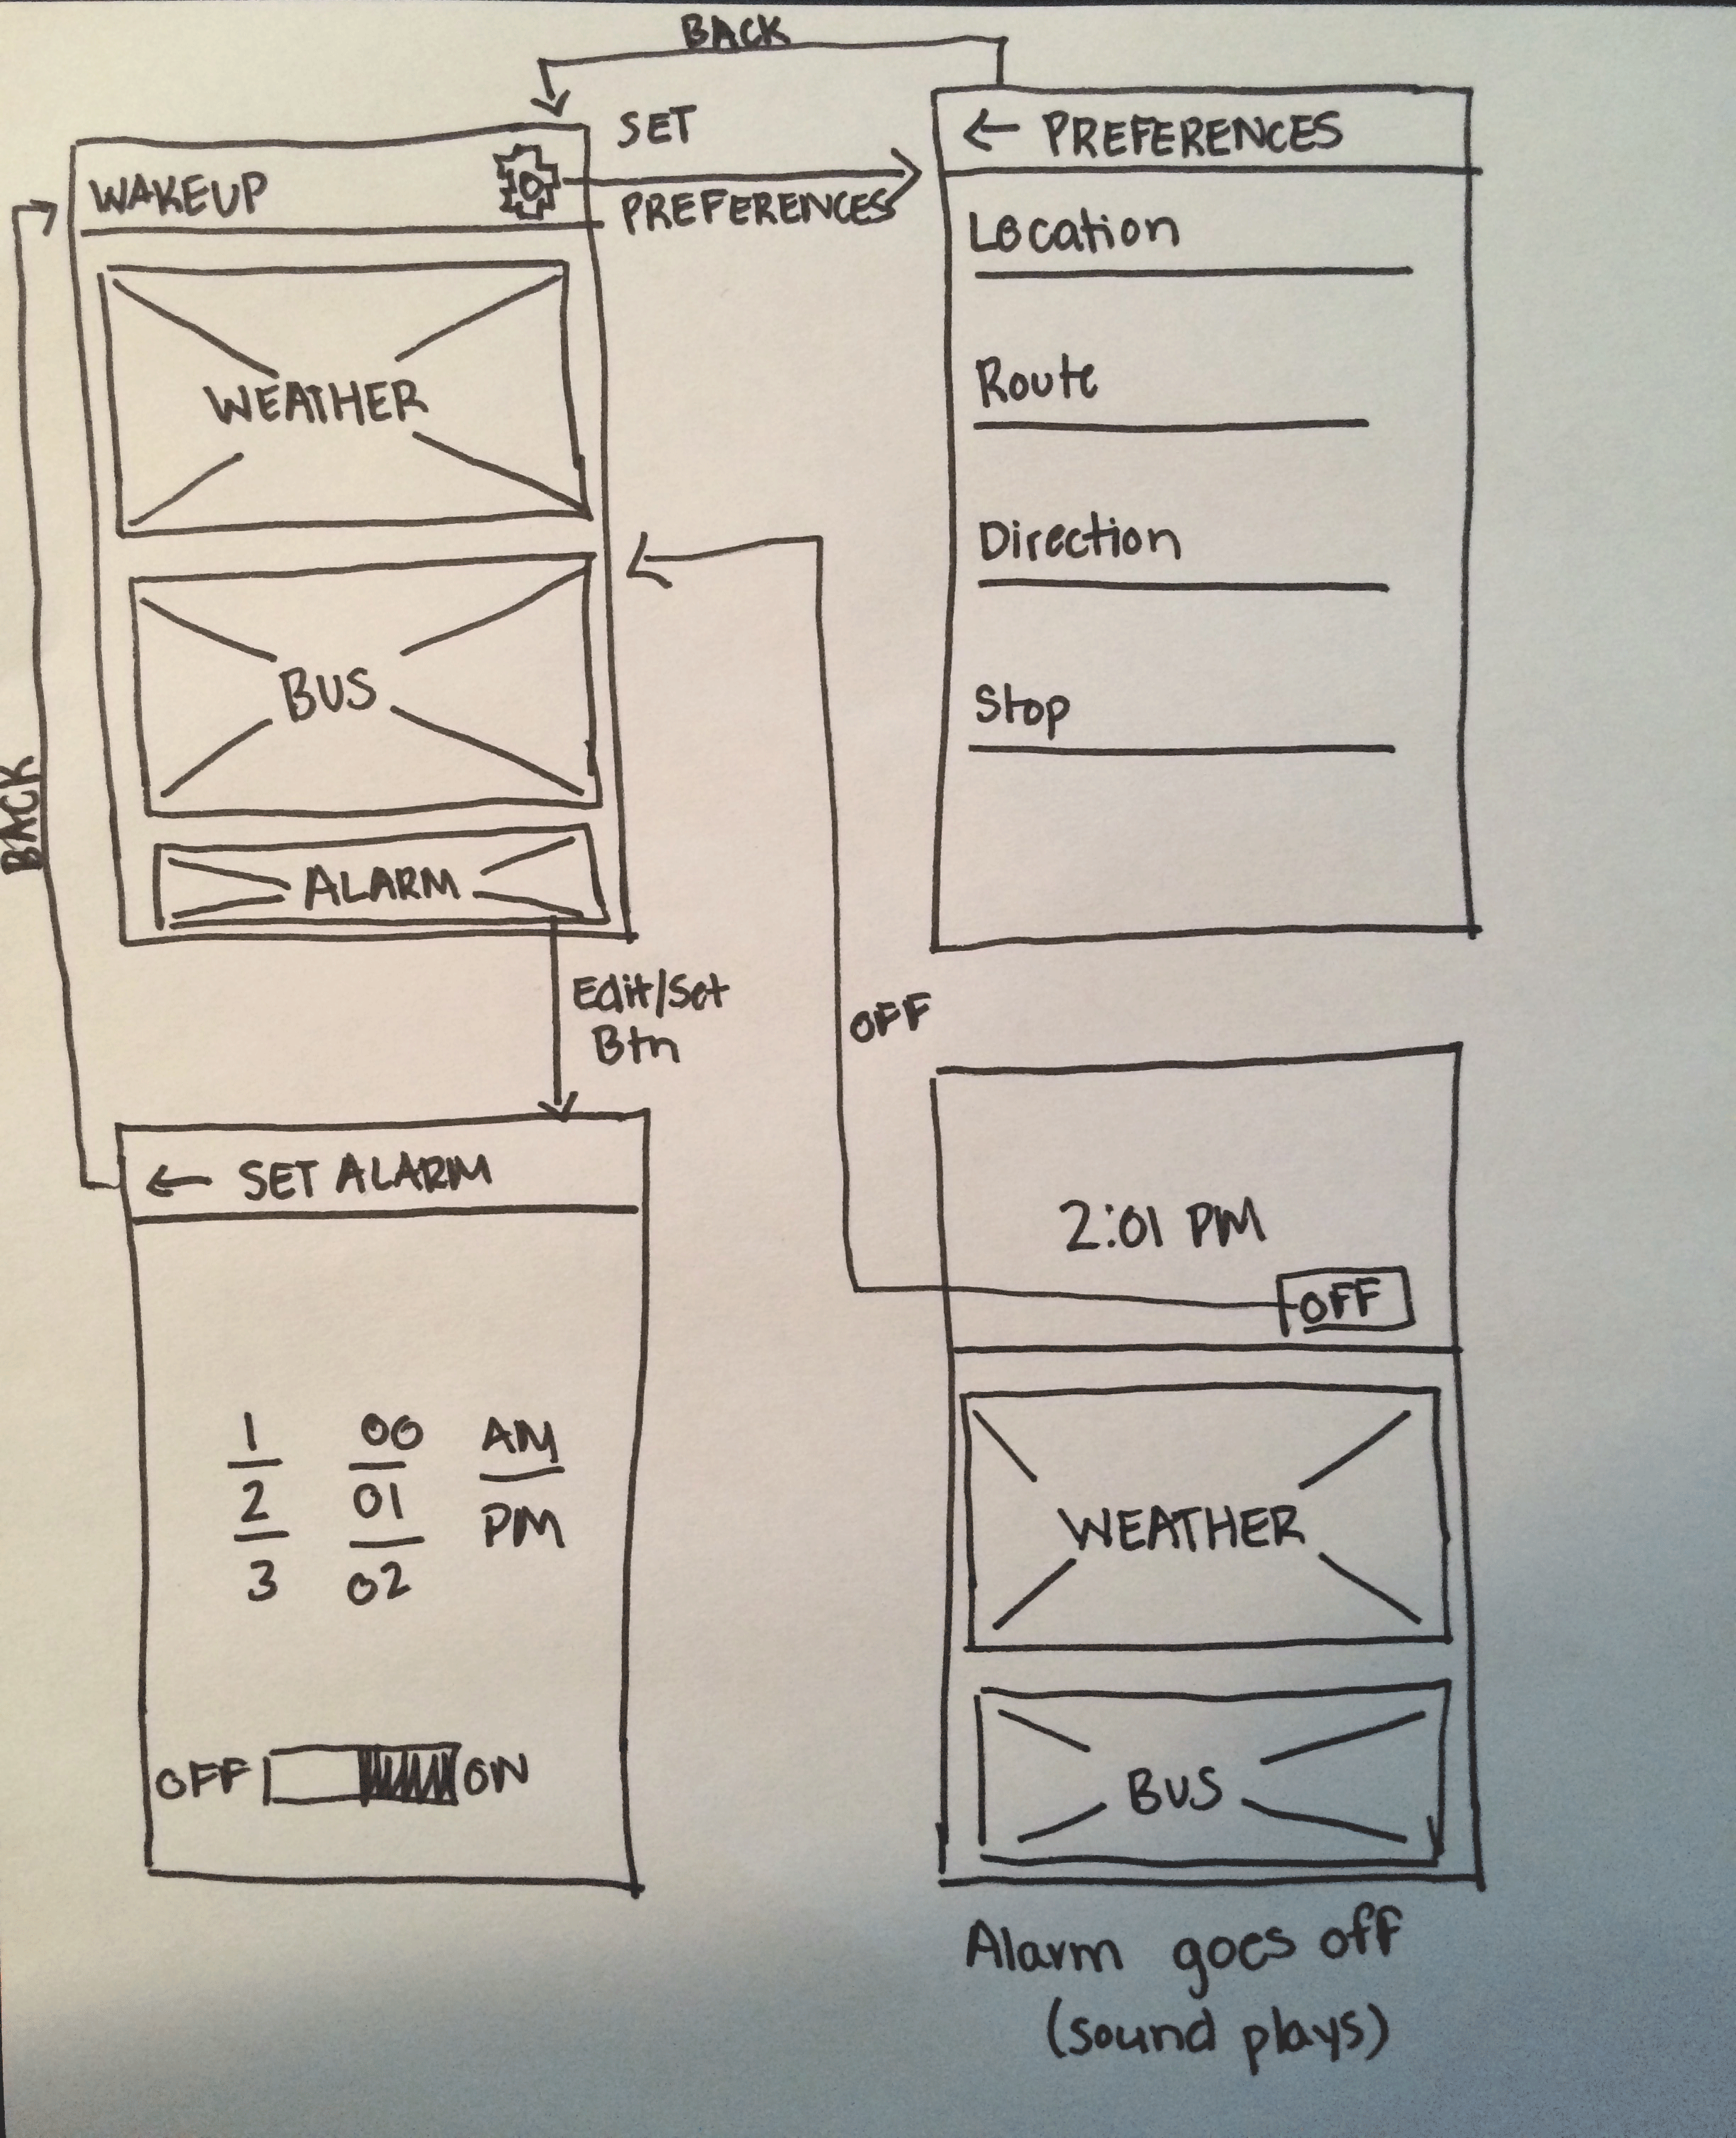 BACK
SET
PREFERENCES
WAKEUP
WEATHER
BUS
ALARM
← PREFERENCES
Location
Route
Direction
Stop
BACK
Edit/Set
Btn
OFF
← SET ALARM
1 00 AM
2 01 PM
3 02
OFF ON
2:01 PM
OFF
WEATHER
BUS
Alarm goes off
(sound plays)